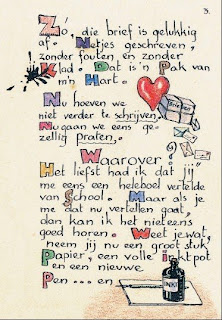 3.
Zó, die brief is gelukkig
af. Netjes geschreven,
zonder fouten en zonder
klad. Dat is 'n Pak van
m'n Hart.
Nu hoeven we
niet verder te schrijven.
Nu gaan we eens ge-
zellig praten.
Brieven
Waarover?
Het liefst had ik dat jij
me eens een heleboel vertelde
van School. Maar als je
me dat nu vertellen gaat,
dan kan ik het niet eens
goed horen. Weet je wat,
neem jij nu een groot stuk
Papier, een volle inktpot
en een nieuwe
Pen...en
INKT